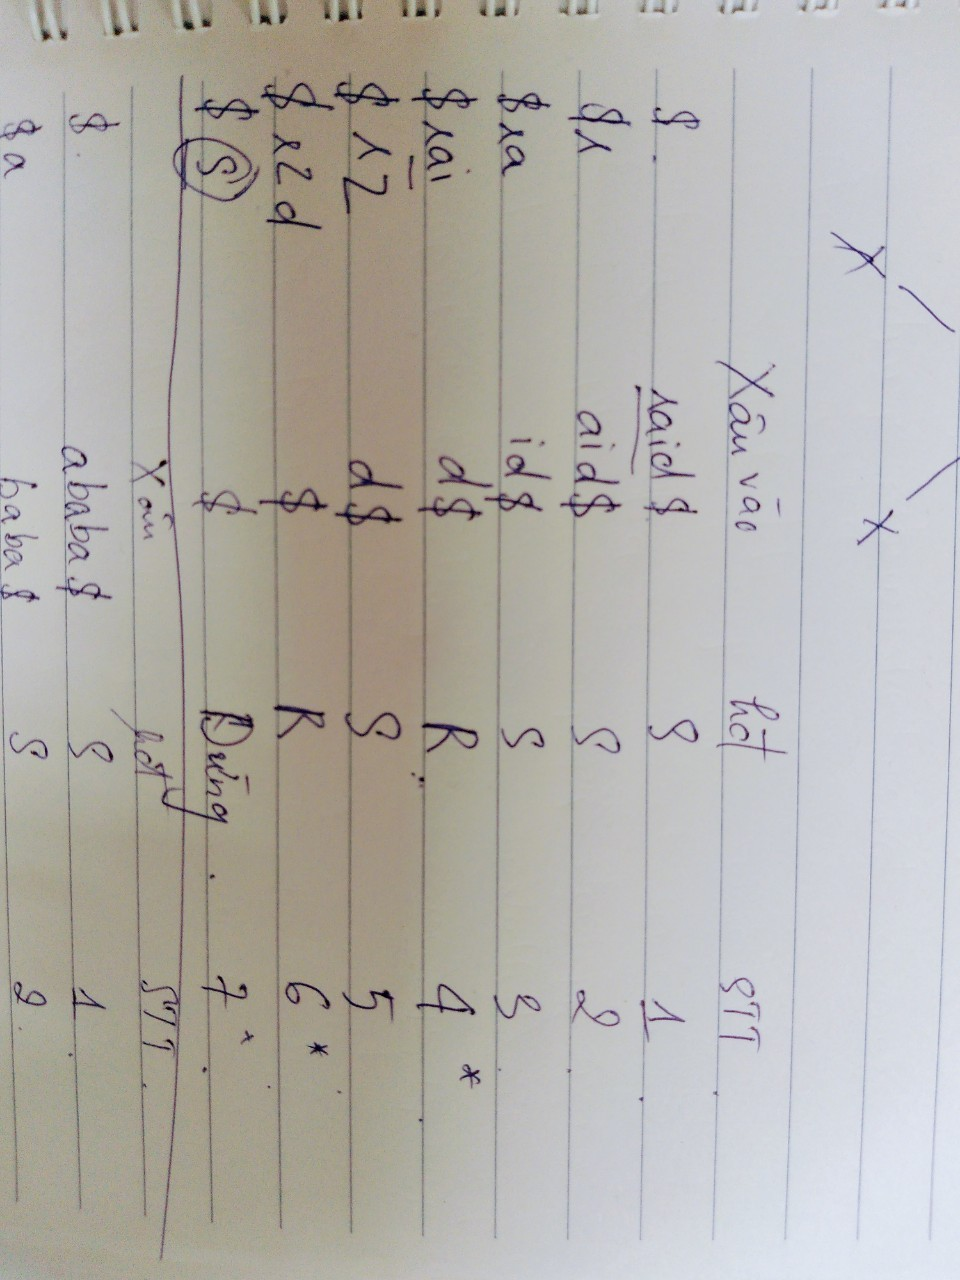 X X
Xâu vào hđ STT
$ raid $ S 1
$r aid$ S 2
$ra id$ S 3
$rai d$ R 4 *
$rZ d$ S 5
$rZd $ R 6 *
$S $ Dừng 7 *
Xâu hđ STT
$ ababa$ S 1
$a baba$ S 2